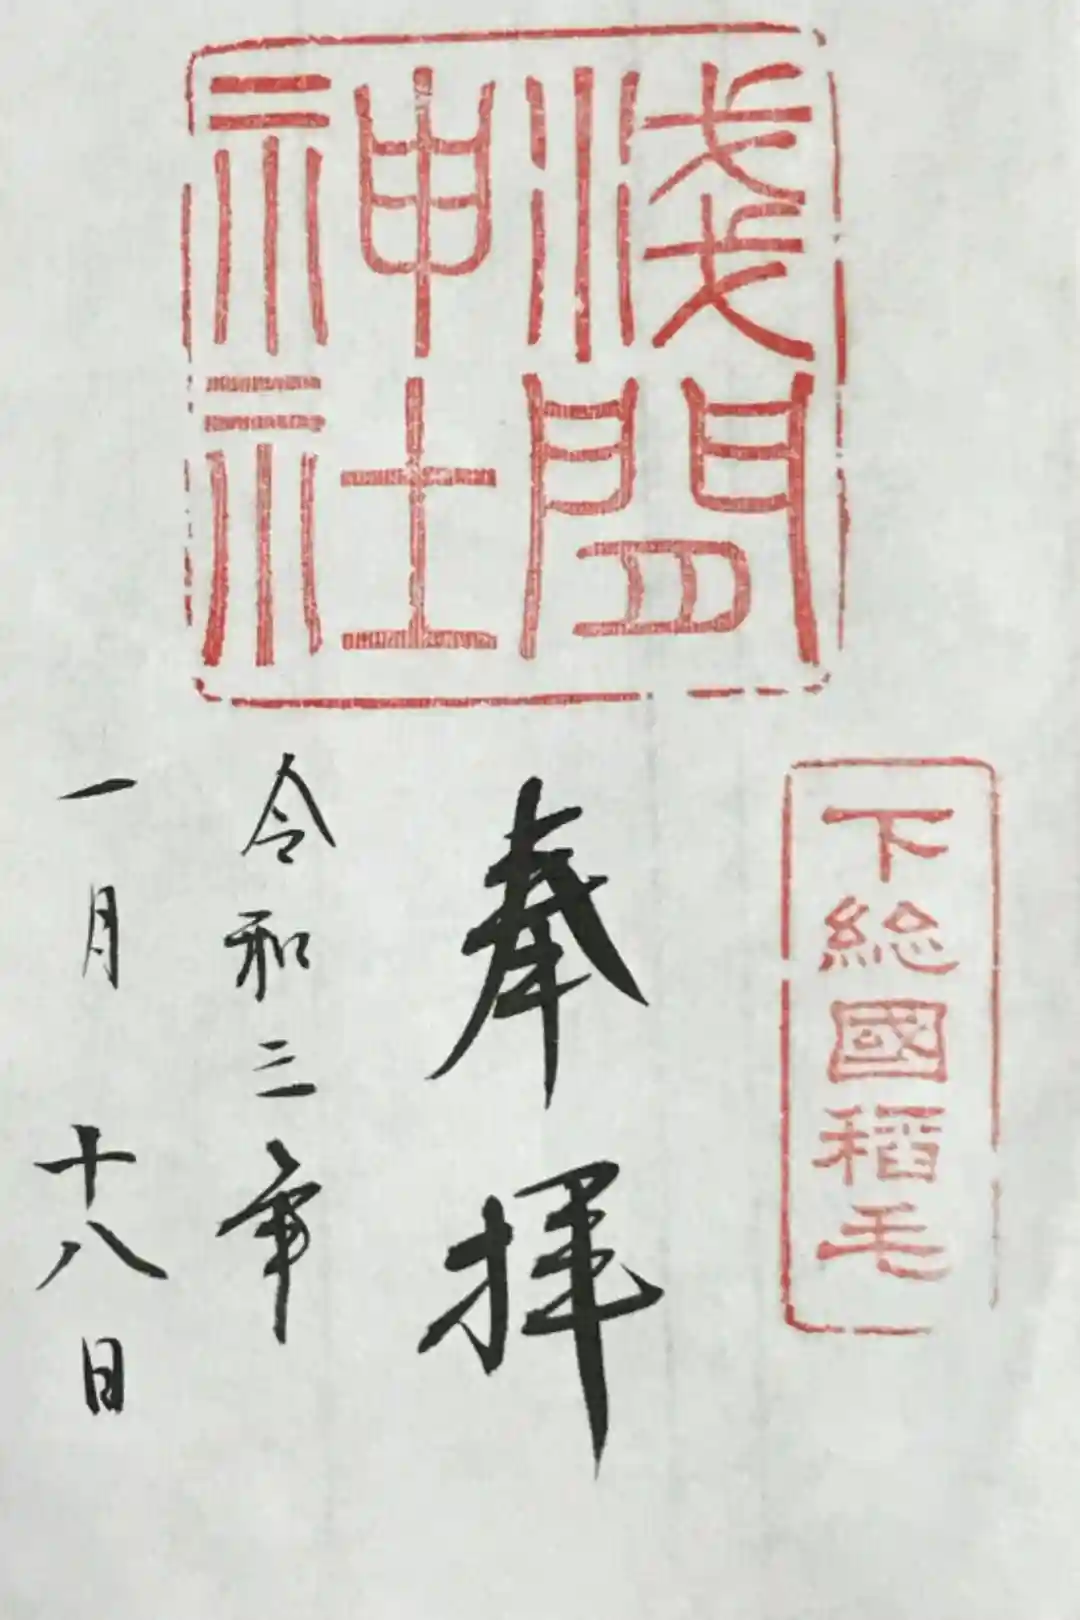 淺間
神社
下総國稲毛
奉拝
令和三年
一月十八日